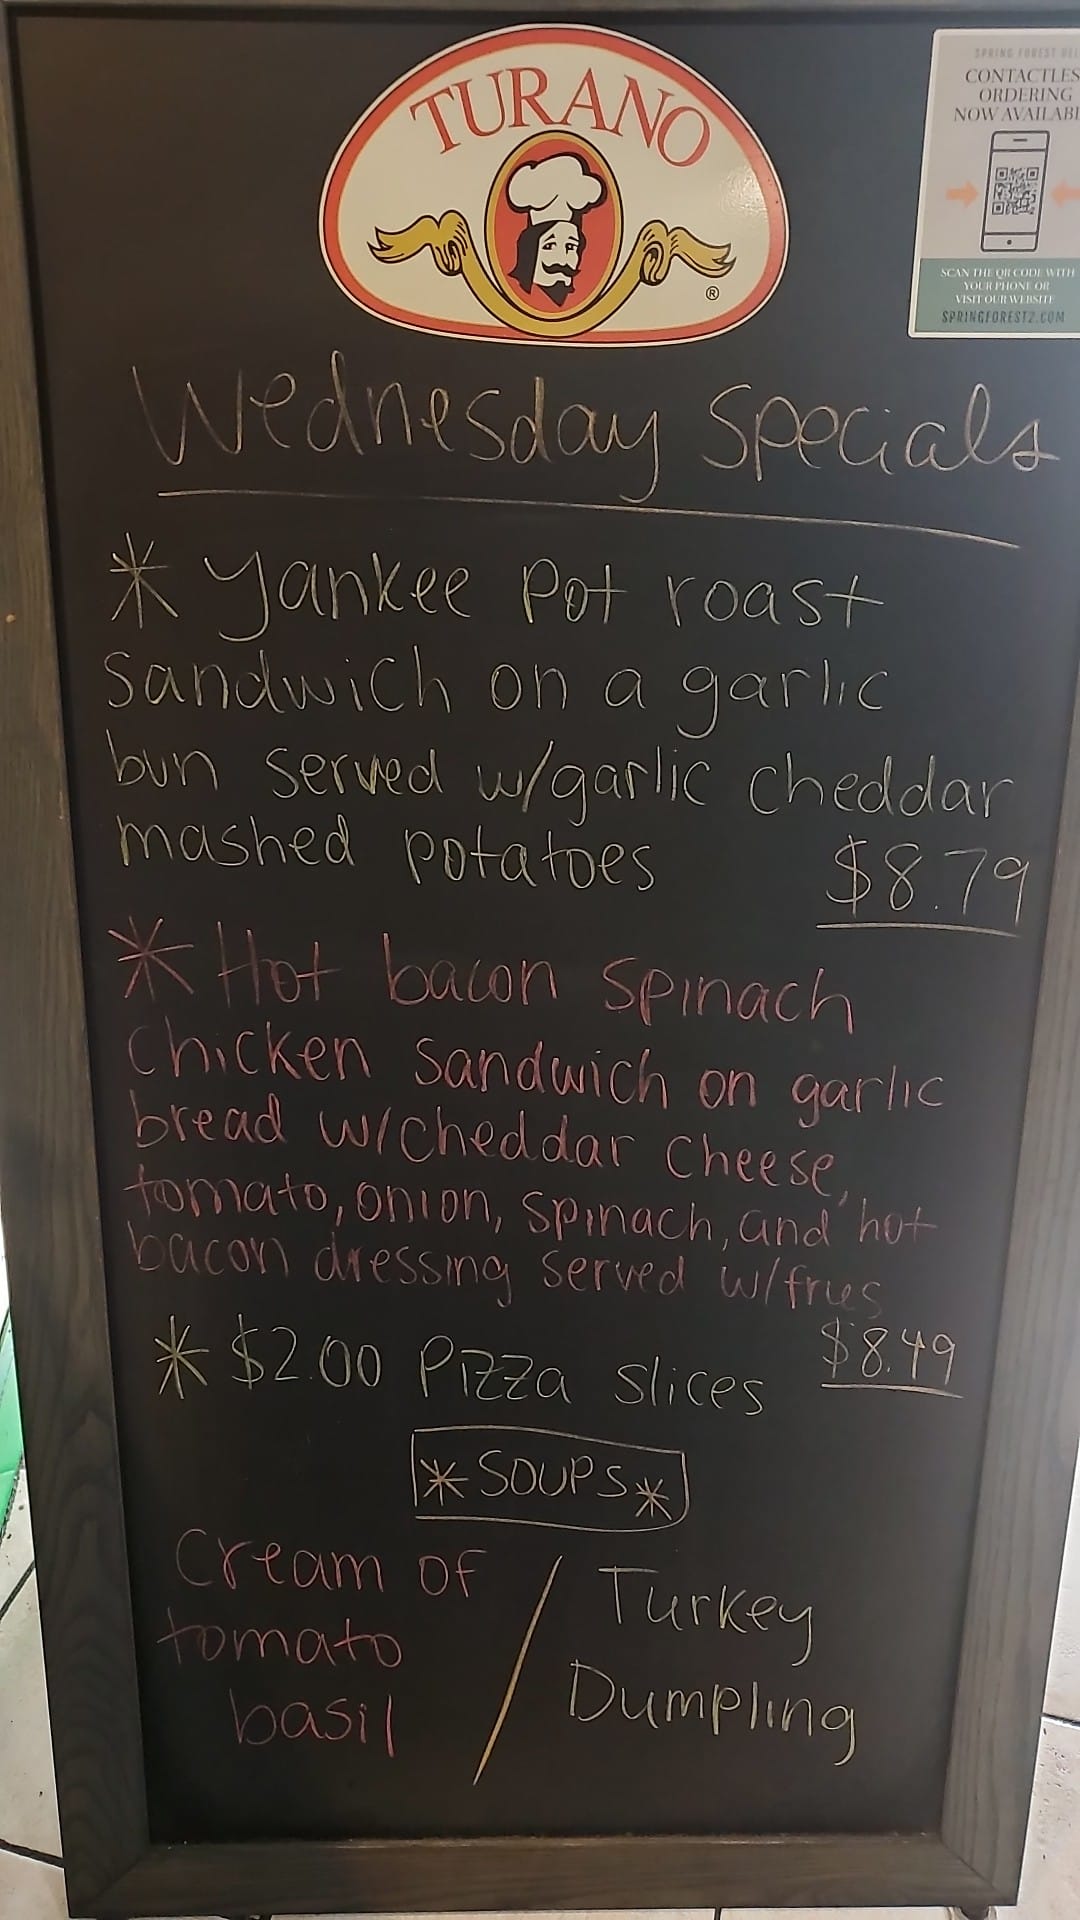 TURANO
®
SPRING FOREST DEL
CONTACTLES
ORDERING
NOW AVAILABL
SCAN THE QR CODE WITH
YOUR PHONE OR
VISIT OUR WEBSITE
SPRINGFOREST2.COM
Wednesday Specials
* Yankee Pot roast
Sandwich on a garlic
bun served w/garlic cheddar
mashed potatoes $8.79
* Hot bacon Spinach
Chicken Sandwich on garlic
bread w/cheddar Cheese,
tomato, onion, spinach, and hot
bacon dressing served w/fries
$8.49
* $2.00 Pizza slices
*SOUPS*
Cream of
tomato
basil
/
Turkey
Dumpling